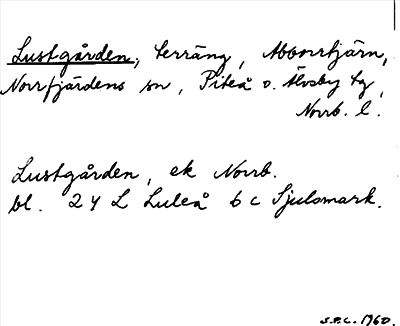 Lustgården, terräng, Abborrtjärn,
Norrfjärdens sn, Piteå o. Älvsby tg,
Norrb. l.
Lustgården, ek Norrb.
bl. 24 L Luleå 6 c Sjulsmark.
S.P.C. 1960.